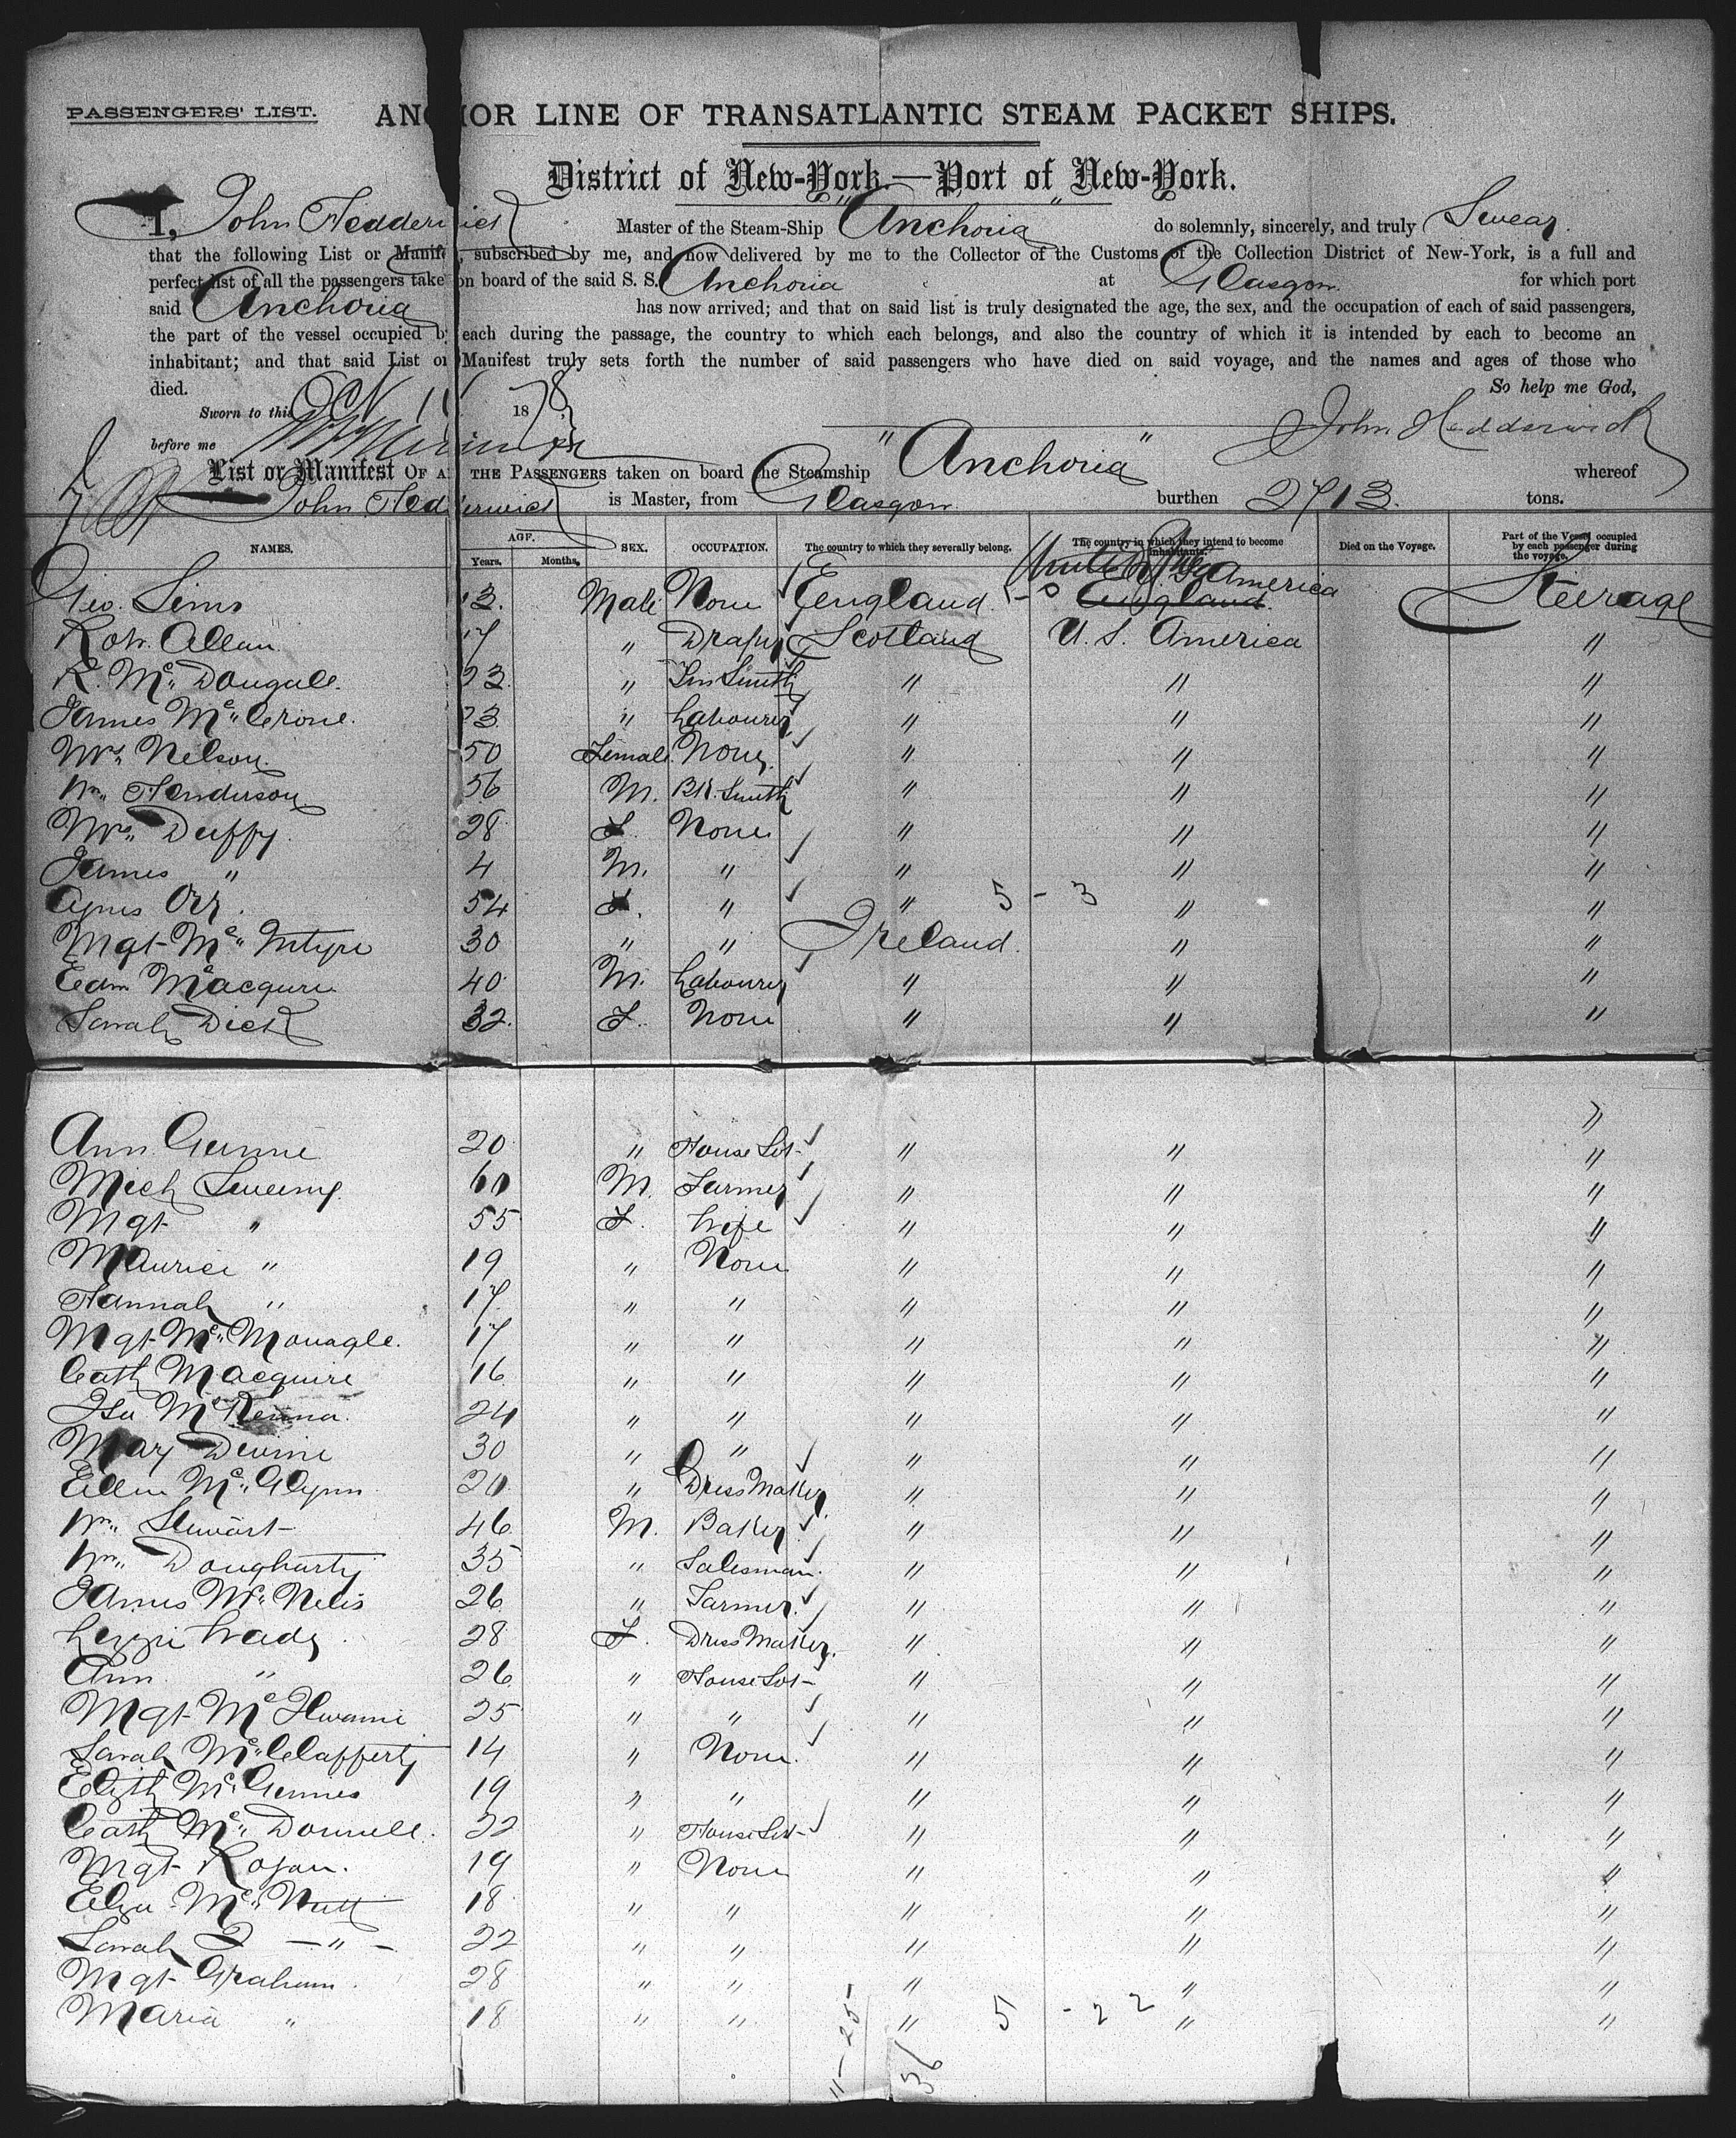 PASSENGERS' LIST. ANCHOR LINE OF TRANSATLANTIC STEAM PACKET SHIPS.
District of New-York.—Port of New-York.
I, John Hedderwick Master of the Steam-Ship "Anchoria" do solemnly, sincerely, and truly Swear.
that the following List or Manifest, subscribed by me, and now delivered by me to the Collector of the Customs of the Collection District of New-York, is a full and
perfect list of all the passengers taken on board of the said S. S. Anchoria at Glasgow for which port
said Anchoria has now arrived; and that on said list is truly designated the age, the sex, and the occupation of each of said passengers,
the part of the vessel occupied by each during the passage, the country to which each belongs, and also the country of which it is intended by each to become an
inhabitant; and that said List or Manifest truly sets forth the number of said passengers who have died on said voyage, and the names and ages of those who
died. So help me God,
Sworn to this Oct 1878
before me John Hedderwick
List or Manifest OF ALL THE PASSENGERS taken on board the Steamship "Anchoria" whereof
John Hedderwick is Master, from Glasgow burthen 2713. tons.
NAMES. AGE. Years. Months. SEX. OCCUPATION. The country to which they severally belong. The country in which they intend to become inhabitants. Died on the Voyage. Part of the Vessel occupied by each passenger during the voyage.
Geo. Sims 13. Male None England. England. U. S. America Steerage
Robt. Allan 17 " Draper Scotland U. S. America "
R. Mc Dougall. 23 " Tin Smith " " "
James Mc Crone. 23 " Labourer " " "
Mrs Nelson. 50 Female None. " " "
Wm Henderson 56 M. Bk. Smith " " "
Mrs Duffy. 28 F. None " " "
James " 4 M. " " " "
Agnes Orr. 54 F. " " 5 - 3 " "
Mgt Mc Intyre 30 " " Ireland. " "
Edm Macguire 40 M. Labourer " " "
Sarah Dick 32. F. None " " "
"
Ann Gunne 20 " House Svt " " "
Mich Sweeny. 60 M. Farmer " " "
Mgt " 55 F. Wife " " "
Maurice " 19 " None " " "
Hannah " 17. " " " " "
Mgt Mc Monagle. 17 " " " " "
Cath Macguire 16 " " " " "
Isa Mc Kenna. 24 " " " " "
Mary Devine 30 " " " " "
Ellen Mc Glynn 20 " Dress Maker " " "
Wm Stewart 46 M. Baker " " "
Wm Dougherty 35 " Salesman. " " "
James Mc Nelis 26 " Farmer. " " "
Lizzie Wade 28 F. Dress Maker. " " "
Ann " 26 " House Svt " " "
Mgt Mc Ilwaine 25 " " " " "
Sarah Mc Clafferty 14 " None. " " "
Elizth Mc Ginnis 19 " " " " "
Cath Mc Donnell. 22 " House Svt " " "
Mgt Rogan. 19 " None " " "
Eliza Mc Nutt 18 " " " " "
Sarah J - " - 22 " " " " "
Mgt Graham. 28 " " " " "
Maria " 18 " " " 5 - 22 " "
11-25
36